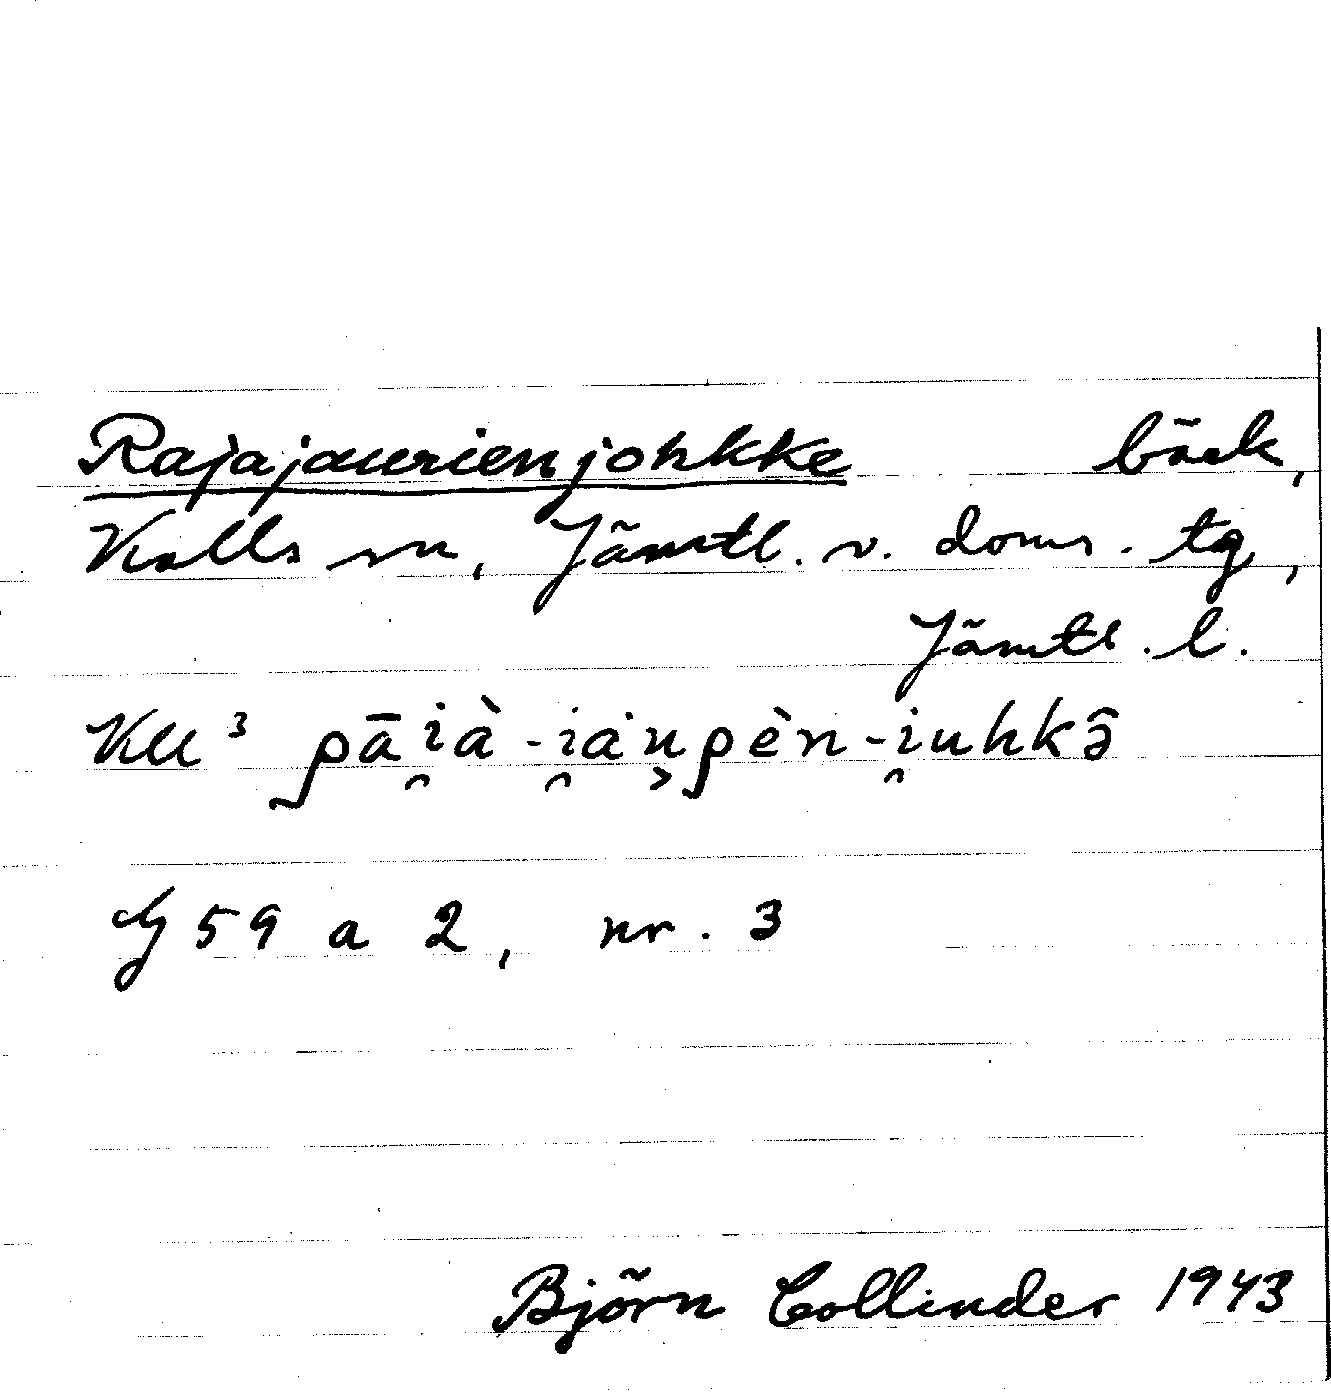 Rajajaurienjohkke bäck,
Kalls sn, Jämtl. v. doms. tg,
Jämtl. l.
KU³ ρā i̯à - i̯àu̬ρèn - i̯uhkə̑
G 59 a 2, nr. 3
Björn Collinder 1943